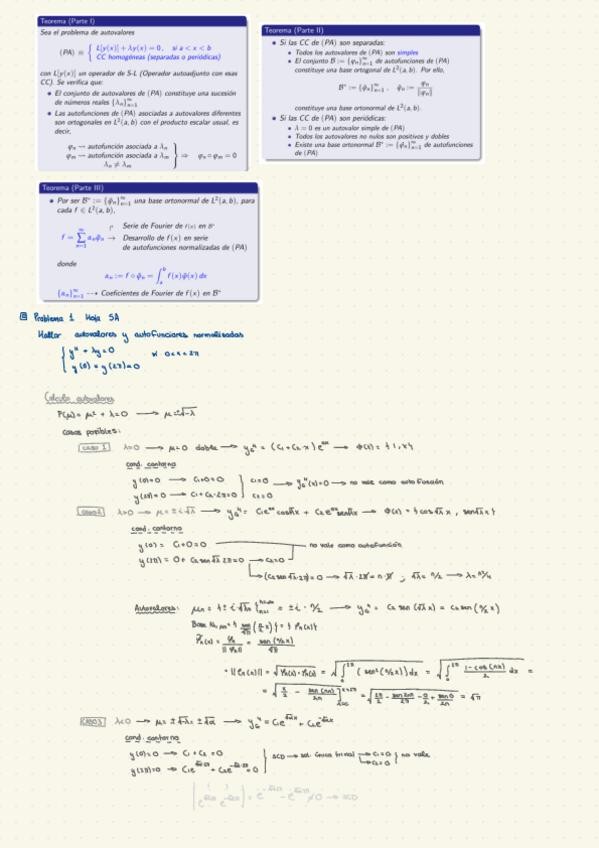 Teorema (Parte I)
Sea el problema de autovalores
(PA) ≡ { L[y(x)] + λy(x) = 0, si a < x < b
CC homogéneas (separadas o periódicas)
con L[y(x)] un operador de S-L (Operador autoadjunto con esas
CC). Se verifica que:
• El conjunto de autovalores de (PA) constituye una sucesión
de números reales {λn}∞n=1
• Las autofunciones de (PA) asociadas a autovalores diferentes
son ortogonales en L²(a, b) con el producto escalar usual, es
decir,
φn → autofunción asociada a λn
φm → autofunción asociada a λm
λn ≠ λm
} ⇒ φn ∘ φm = 0
Teorema (Parte II)
• Si las CC de (PA) son separadas:
• Todos los autovalores de (PA) son simples
• El conjunto B := {φn}∞n=1 de autofunciones de (PA)
constituye una base ortogonal de L²(a, b). Por ello,
B* := {φ̃n}∞n=1, φ̃n := φn / ‖φn‖
constituye una base ortonormal de L²(a, b).
• Si las CC de (PA) son periódicas:
• λ = 0 es un autovalor simple de (PA)
• Todos los autovalores no nulos son positivos y dobles
• Existe una base ortonormal B* := {φ̃n}∞n=1 de autofunciones
de (PA)
Teorema (Parte III)
• Por ser B* := {φ̃n}∞n=1 una base ortonormal de L²(a, b), para
cada f ∈ L²(a, b),
Serie de Fourier de f(x) en B*
f = ∑∞n=1 anφ̃n → Desarrollo de f(x) en serie
de autofunciones normalizadas de (PA)
donde
an := f ∘ φ̃n = ∫ab f(x)φ̃(x) dx
{an}∞n=1 ⇢ Coeficientes de Fourier de f(x) en B*
Problema 1 Hoja 5A
Hallar autovalores y autofunciones normalizadas
{ y'' + λy = 0 si 0<x<2π
y(0) = y(2π) = 0
Calculo autovalores
P(μ) = μ² + λ = 0 → μ = ±√-λ
casos posibles:
caso 1 λ=0 → μ=0 doble → yG = (C1 + C2·x) e0x → Φ(x) = {1, x}
cond. contorno
y(0)=0 → C1+0=0
y(2π)=0 → C1 + C2·2π=0
} C1=0 C2=0 → yG(x)=0 → no vale como autofunción
caso 2 λ>0 → μ = ± i√λ → yG = C1e0x cos√λx + C2e0x sen√λx → Φ(x) = {cos√λx, sen√λx}
cond. contorno
y(0) = C1+0=0 no vale como autofunción
y(2π) = 0 + C2 sen√λ 2π=0 → C2=0
→ (C2 sen√λ·2π)=0 → √λ·2π=n·π ; √λ = n/2 → λ=n²/4
Autovalores: μn = {± i·√λn}∞n=1 = ± i·n/2 → yG = C2 sen(√λx) = C2 sen(n/2 x)
φ̃n(x) = φn / ‖φn‖ = sen(n/2 x) / √π
• ‖φn(x)‖ = √φn(x)·φn(x) = √∫02π (sen²(n/2 x)) dx = √∫02π 1-cos(nx)/2 dx =
= √[x/2 - sen(nx)/2n]x=2πx=0 = √2π/2 - sen2nπ/2n - 0/2 + sen0/2n = √π
caso 3 λ<0 → μ = ±√-λ = ±√α → yG = C1e√αx + C2e-√αx
cond. contorno
y(0)=0 → C1 + C2 = 0
y(2π)=0 → C1e√α2π + C2e-√α·2π = 0
} SCD → sol. única trivial → C1=0 C2=0 } no vale
| 1 1 e√α2π e-√α2π | = e-√α2π - e√α2π ≠ 0 → SCD